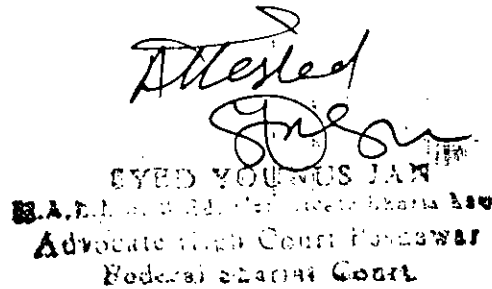 Attested
SYED YOUNUS JAN
Sharia Law
Advocate High Court Peshawar
Federal Shariat Court